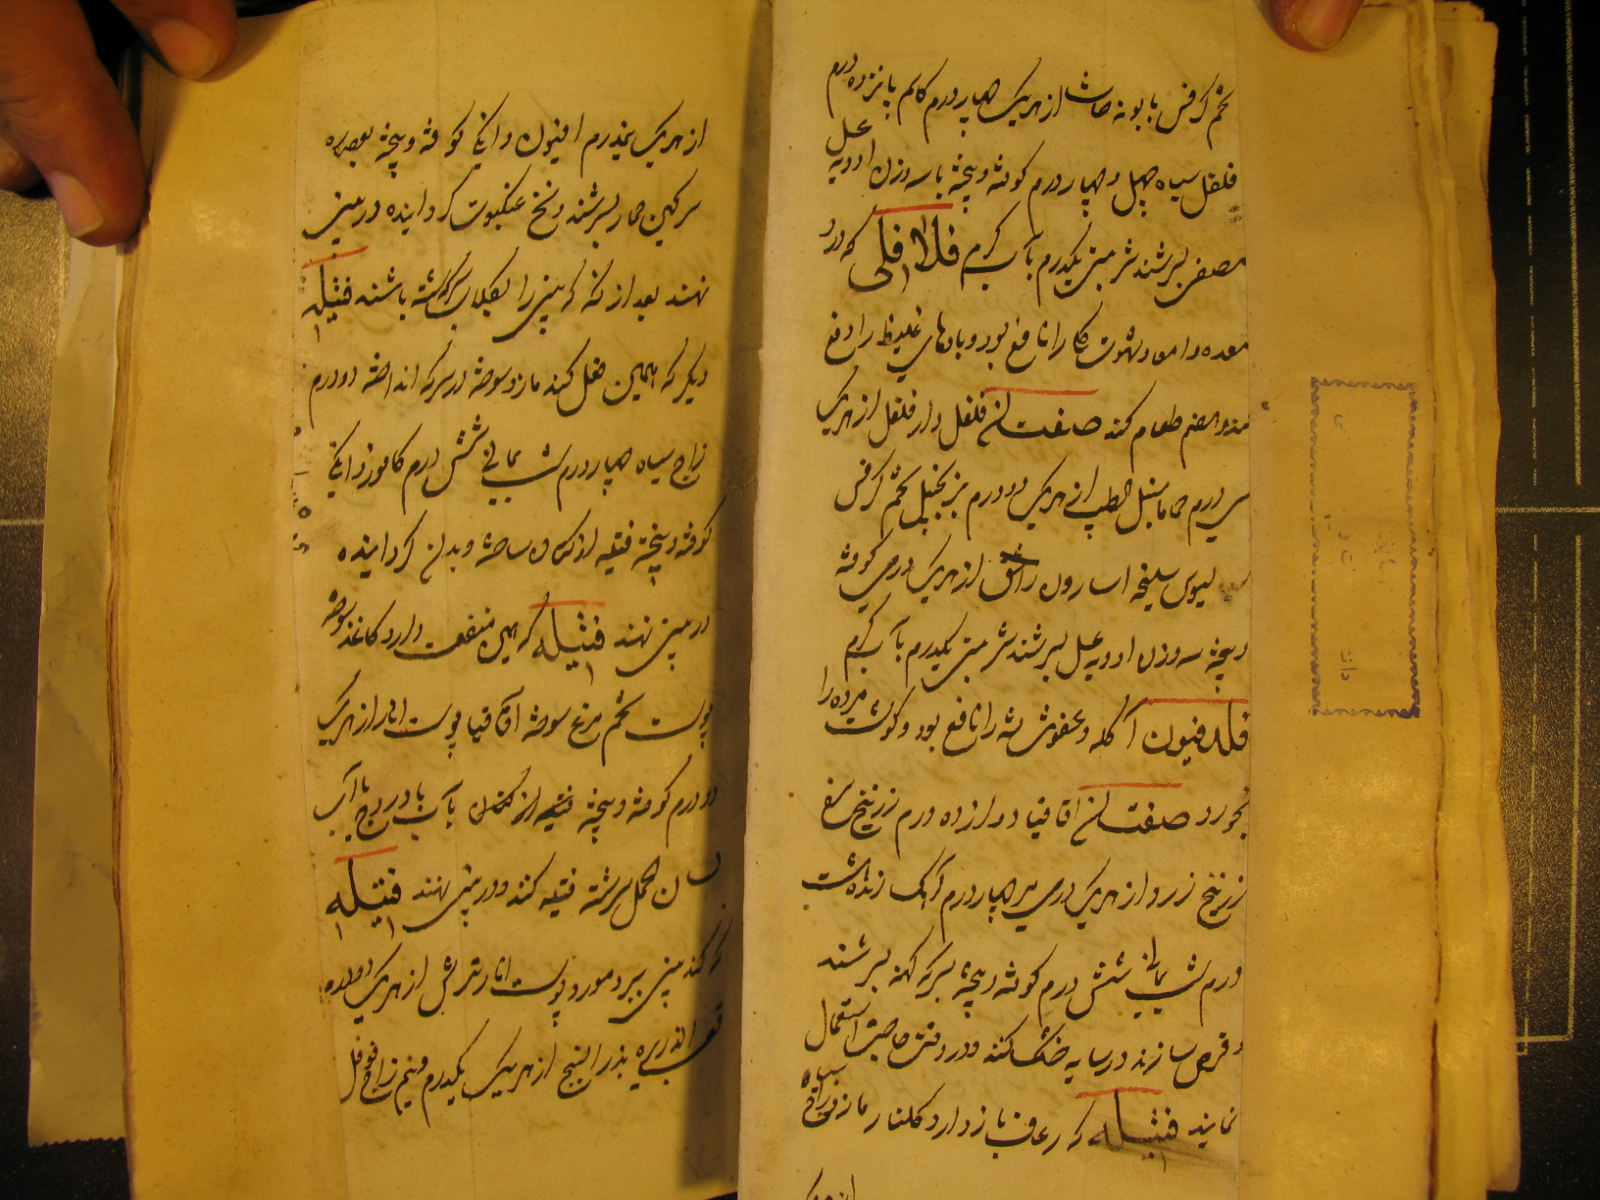 تخم کرفس بابونه حاشا از هریک چهار درم کاکم پانزده درم
فلفل سیاه چهل و چهار درم کوفته و بیخته با سه وزن ادویه عسل
مصفی بسرشند شربتی یکدرم بآب گرم فلافلی که درد
معده و امعا و شهوت کلبی را نافع بود و بادهای غلیظ را دفع
کند و هضم طعام کند صفت آن فلفل دار فلفل از هریک
سی درم حماما سنبل الطیب از هریک دو درم زنجبیل تخم کرفس
سیسالیوس سلیخه اسارون راسن از هریک درمی کوفته
و بیخته سه وزن ادویه عسل بسرشند شربتی یکدرم بآب گرم
فلدفیون آکله و عفونت لثه را نافع بود و گوشت مرده را
بخورد صفت آن اقاقیا دوازده درم زرنیخ سرخ
زرنیخ زرد از هریک درمی چهار درم آهک زنده هشت
درم شب یمانی شش درم کوفته و بیخته بسرکه کهنه بسرشند
و قرص سازند و در سایه خشک کنند و در وقت حاجت استعمال
نمایند فتیله که رعاف باز دارد گلنار مازو زاج سیاه
از هریک
از هریک نیمدرم افیون دانکی کوفته و بیخته بعصاره
سرکین حمار بسرشند و نخ عنکبوت گردانیده در بینی
نهند بعد از آنکه که بینی را بگلاب و سرکه شسته باشند فتیله
دیگر که همین فعل کند مازو سوخته در سرکه انداخته دو درم
زاج سیاه چهار درم شب یمانی شش درم کافور دانکی
کوفته و بیخته فتیله از کتان ساخته و بدان گردانیده
در بینی نهند فتیله که همین منفعت دارد کاغذ سوخته
پوست تخم مرغ سوخته اقاقیا پوست انار از هریک
دو درم کوفته و بیخته فتیله از کتان بآب بادروج یا آب
لسان الحمل سرشته فتیله کنند و در بینی نهند فتیله
که گند بینی ببرد مورد پوست انار ترش از هریک دو درم
قصب الذریره بذر البنج از هریک یکدرم و نیم زاج فوفل